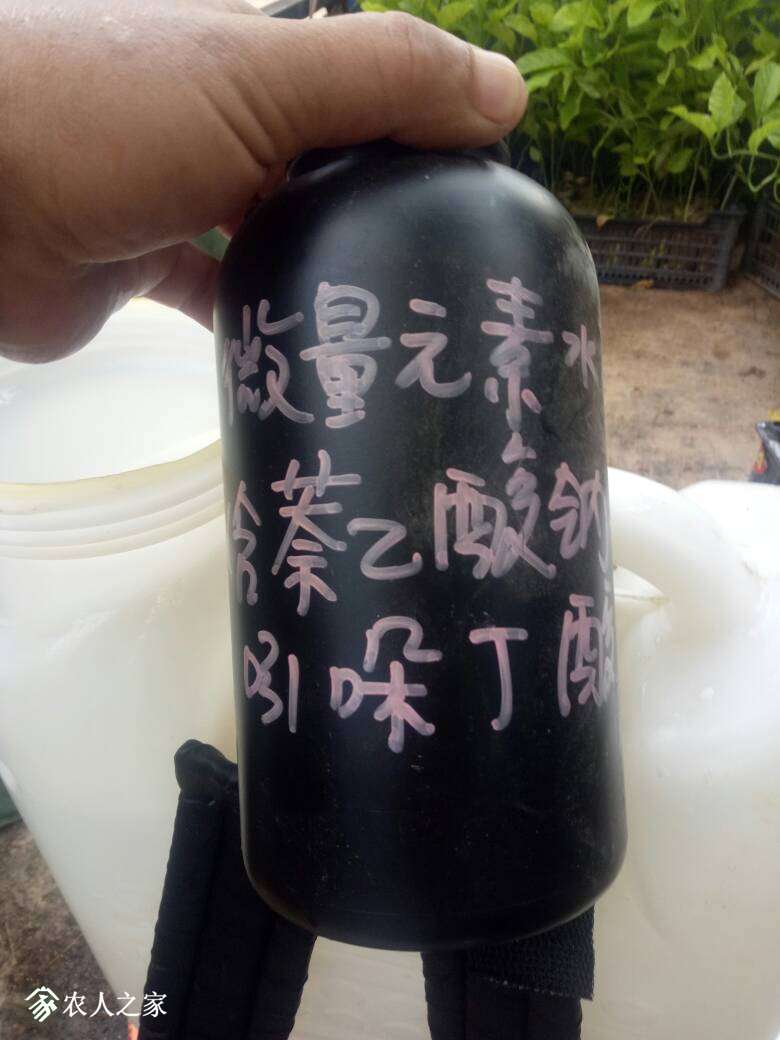 微量元素水
含萘乙酸钠
吲哚丁酸
农人之家